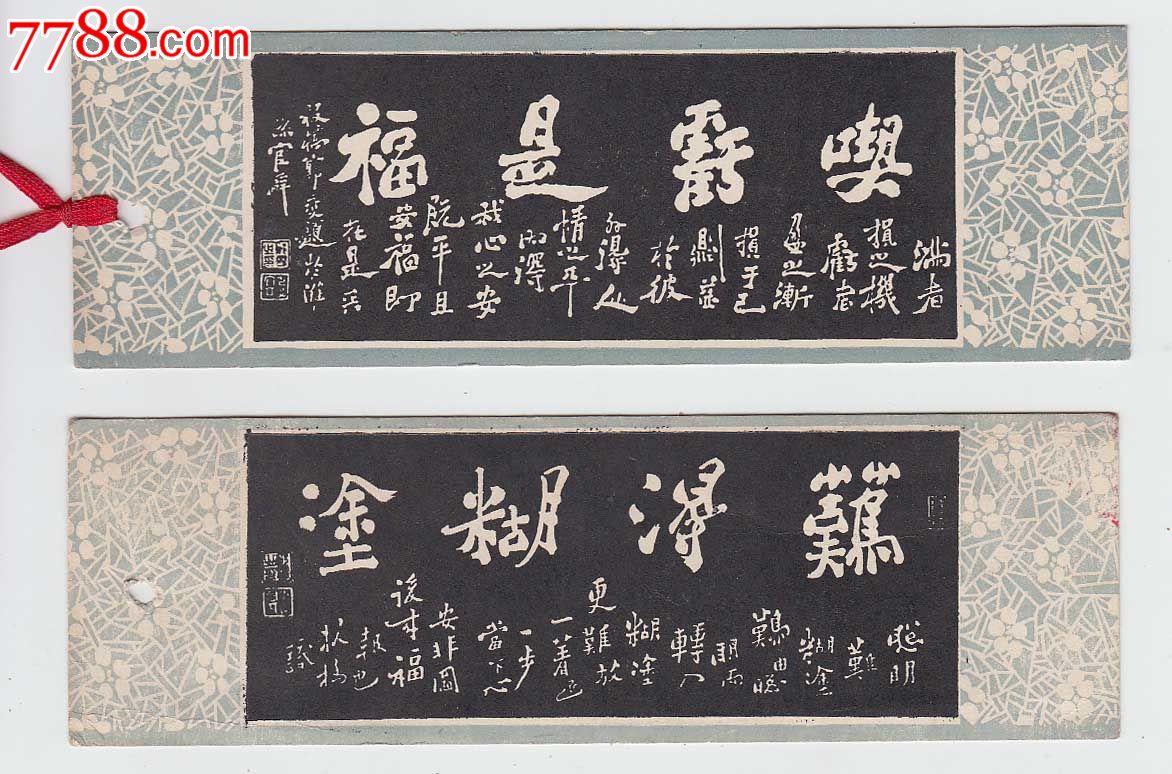 7788.com
喫虧是福
滿者
損之機
虧者
盈之漸
損于己
則益
於彼
外得人
情之平
內得
我心之安
既平且
安福即
在是矣
板橋鄭燮題於濰
縣官舍
難得糊塗
聰明
難
糊塗
難由聰
明而
轉入
糊塗
更難放
一着退
一步
當下心
安非圖
後來福
報也
板橋
識